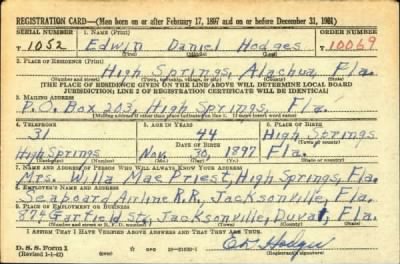 REGISTRATION CARD—(Men born on or after February 17, 1897 and on or before December 31, 1921)
SERIAL NUMBER 1. NAME (Print) ORDER NUMBER
T 1052 Edwin Daniel Hodges 10069
(First) (Middle) (Last)
2. PLACE OF RESIDENCE (Print)
High Springs, Alachua, Fla.
(Number and street) (Town, township, village, or city) (County) (State)
[THE PLACE OF RESIDENCE GIVEN ON THE LINE ABOVE WILL DETERMINE LOCAL BOARD
JURISDICTION; LINE 2 OF REGISTRATION CERTIFICATE WILL BE IDENTICAL]
3. MAILING ADDRESS
P.O. Box 203, High Springs, Fla.
[Mailing address if other than place indicated on line 2. If same insert word same]
4. TELEPHONE 5. AGE IN YEARS 6. PLACE OF BIRTH
31 44 High Springs
DATE OF BIRTH (Town or county)
High Springs Nov. 30, 1897 Fla.
(Exchange) (Number) (Mo.) (Day) (Yr.) (State or country)
7. NAME AND ADDRESS OF PERSON WHO WILL ALWAYS KNOW YOUR ADDRESS
Mrs. Willa Mae Priest, High Springs, Fla.
8. EMPLOYER'S NAME AND ADDRESS
Seaboard Airline R.R., Jacksonville, Fla.
9. PLACE OF EMPLOYMENT OR BUSINESS
Garfield St., Jacksonville, Duval, Fla.
(Number and street or R. F. D. number) (Town) (County) (State)
I AFFIRM THAT I HAVE VERIFIED ABOVE ANSWERS AND THAT THEY ARE TRUE.
D. S. S. Form 1
(Revised 1-1-42) (Registrant's signature)